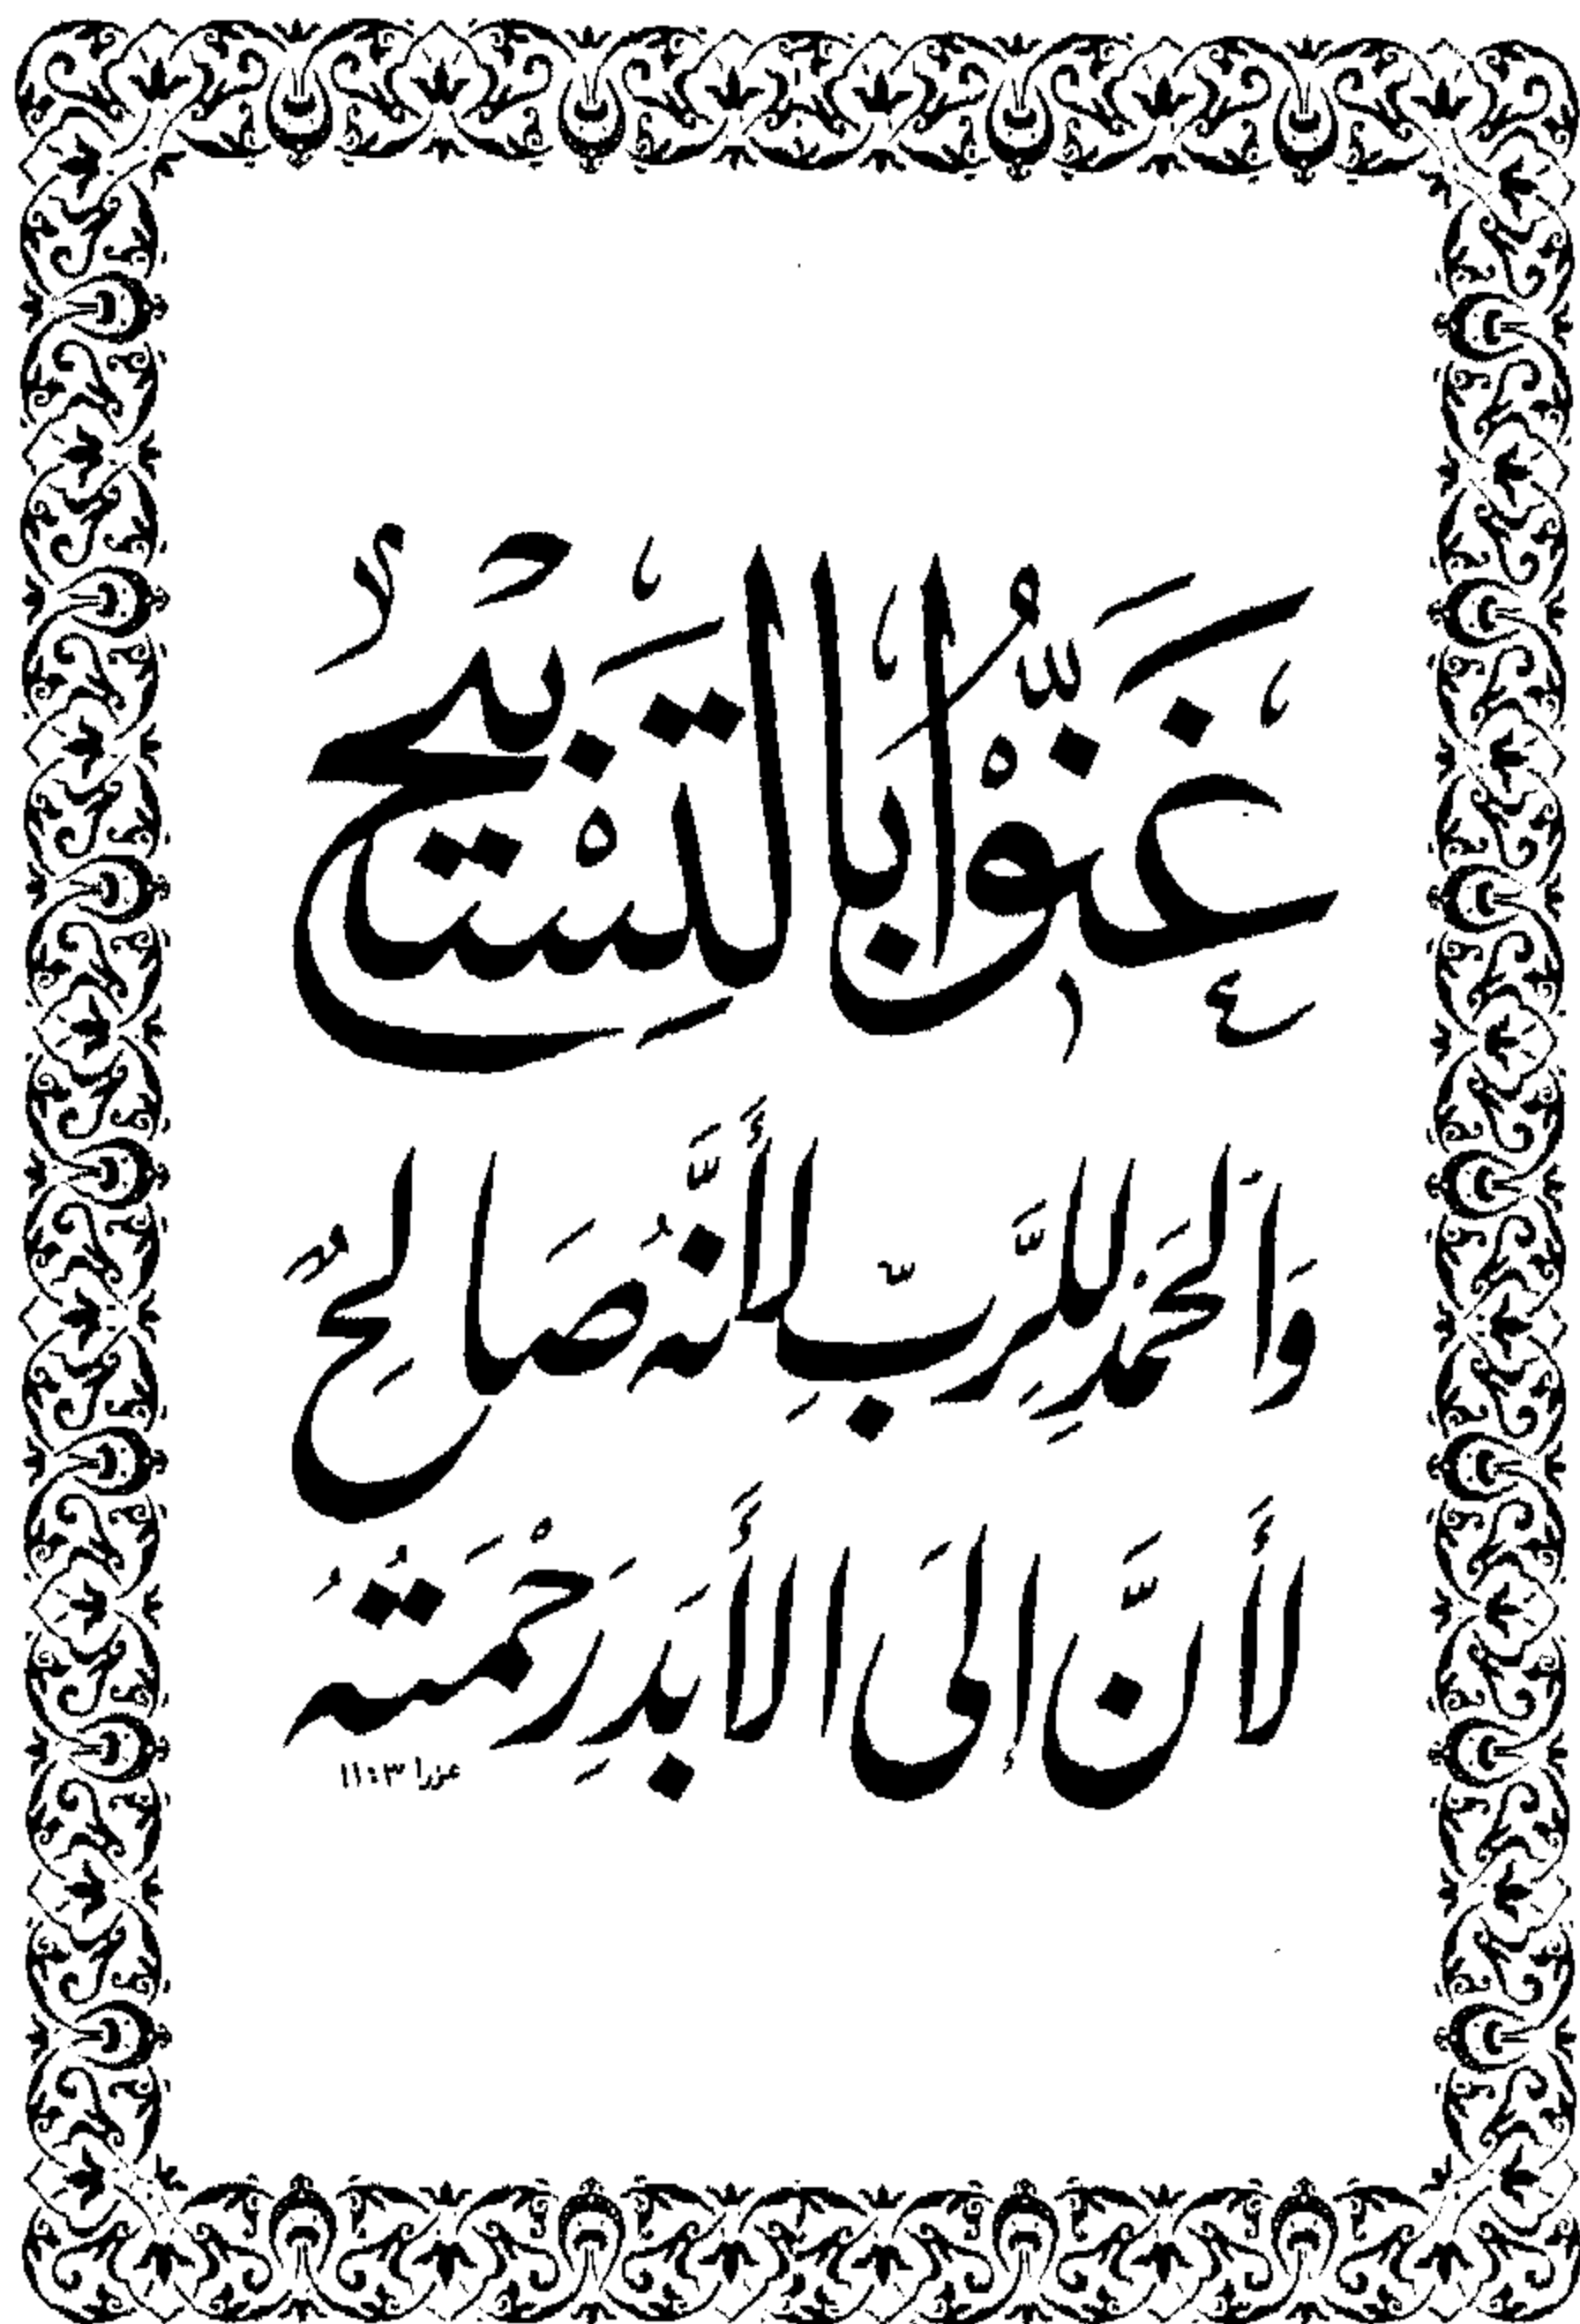 غَنَّوْا بِالتَّسْبِيحِ
وَالْحَمْدِ لِلرَّبِّ لأَنَّهُ صَالِحٌ
لأَنَّ إِلَى الأَبَدِ رَحْمَتَهُ
عزرا ١١:٣